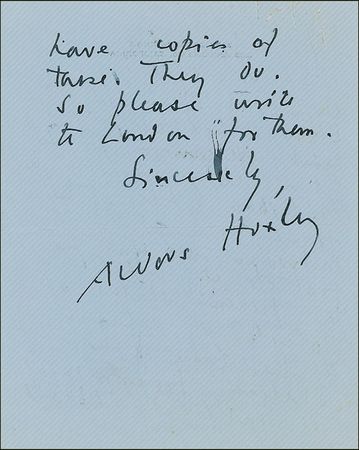 have copies of
these. They do.
So please write
to London for them.
Sincerely,
Aldous Huxley